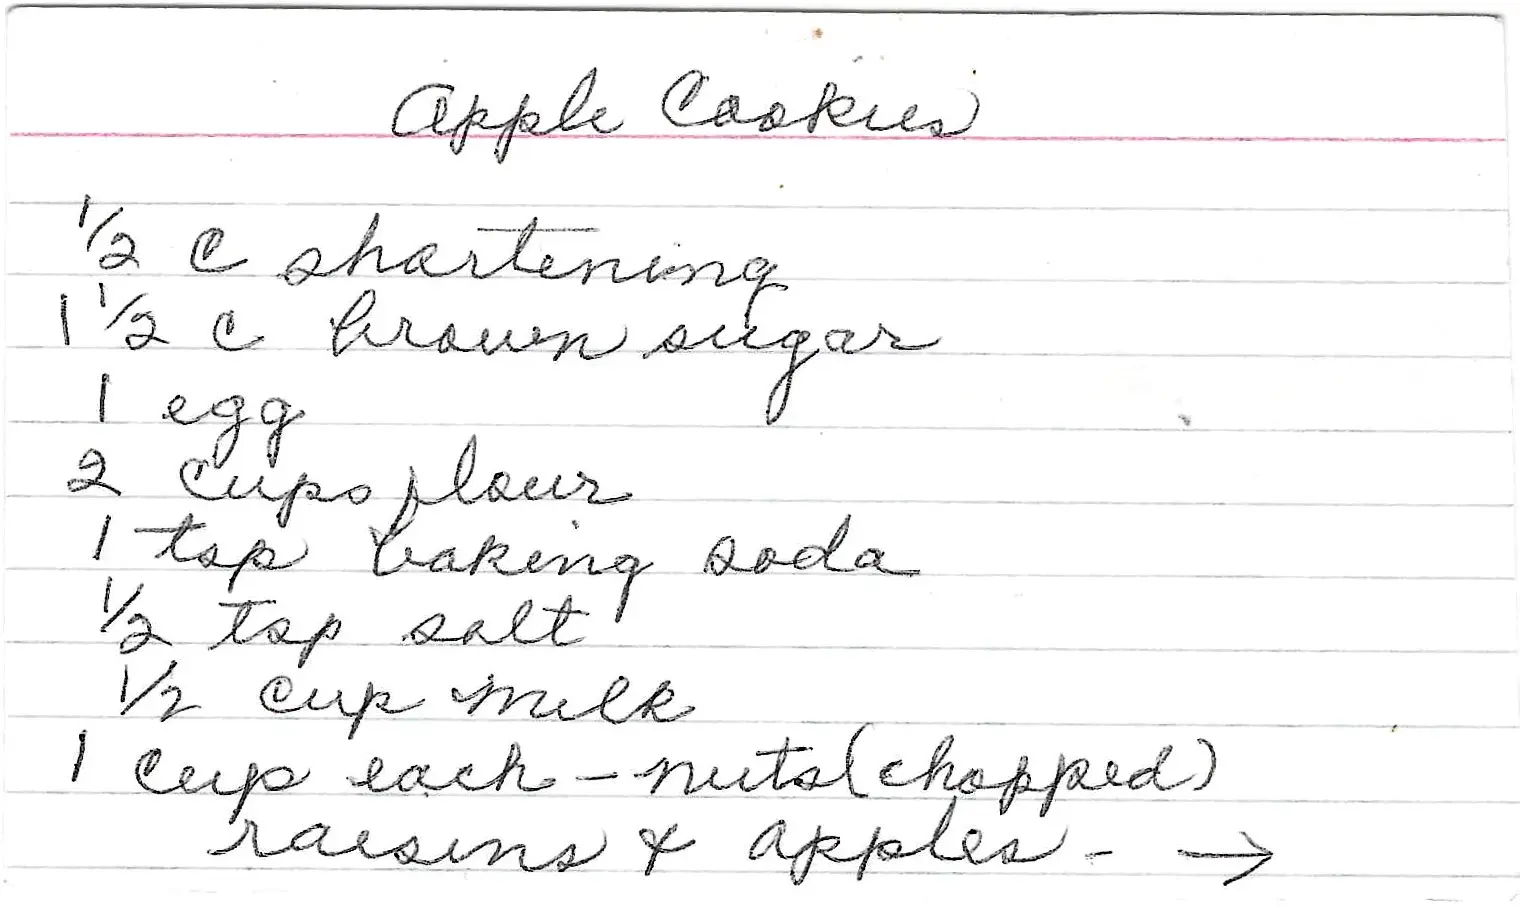 Apple Cookies
1/2 c shortening
1 1/2 c brown sugar
1 egg
2 cups flour
1 tsp baking soda
1/2 tsp salt
1/2 cup milk
1 cup each - nuts (chopped)
raisins & apples - →